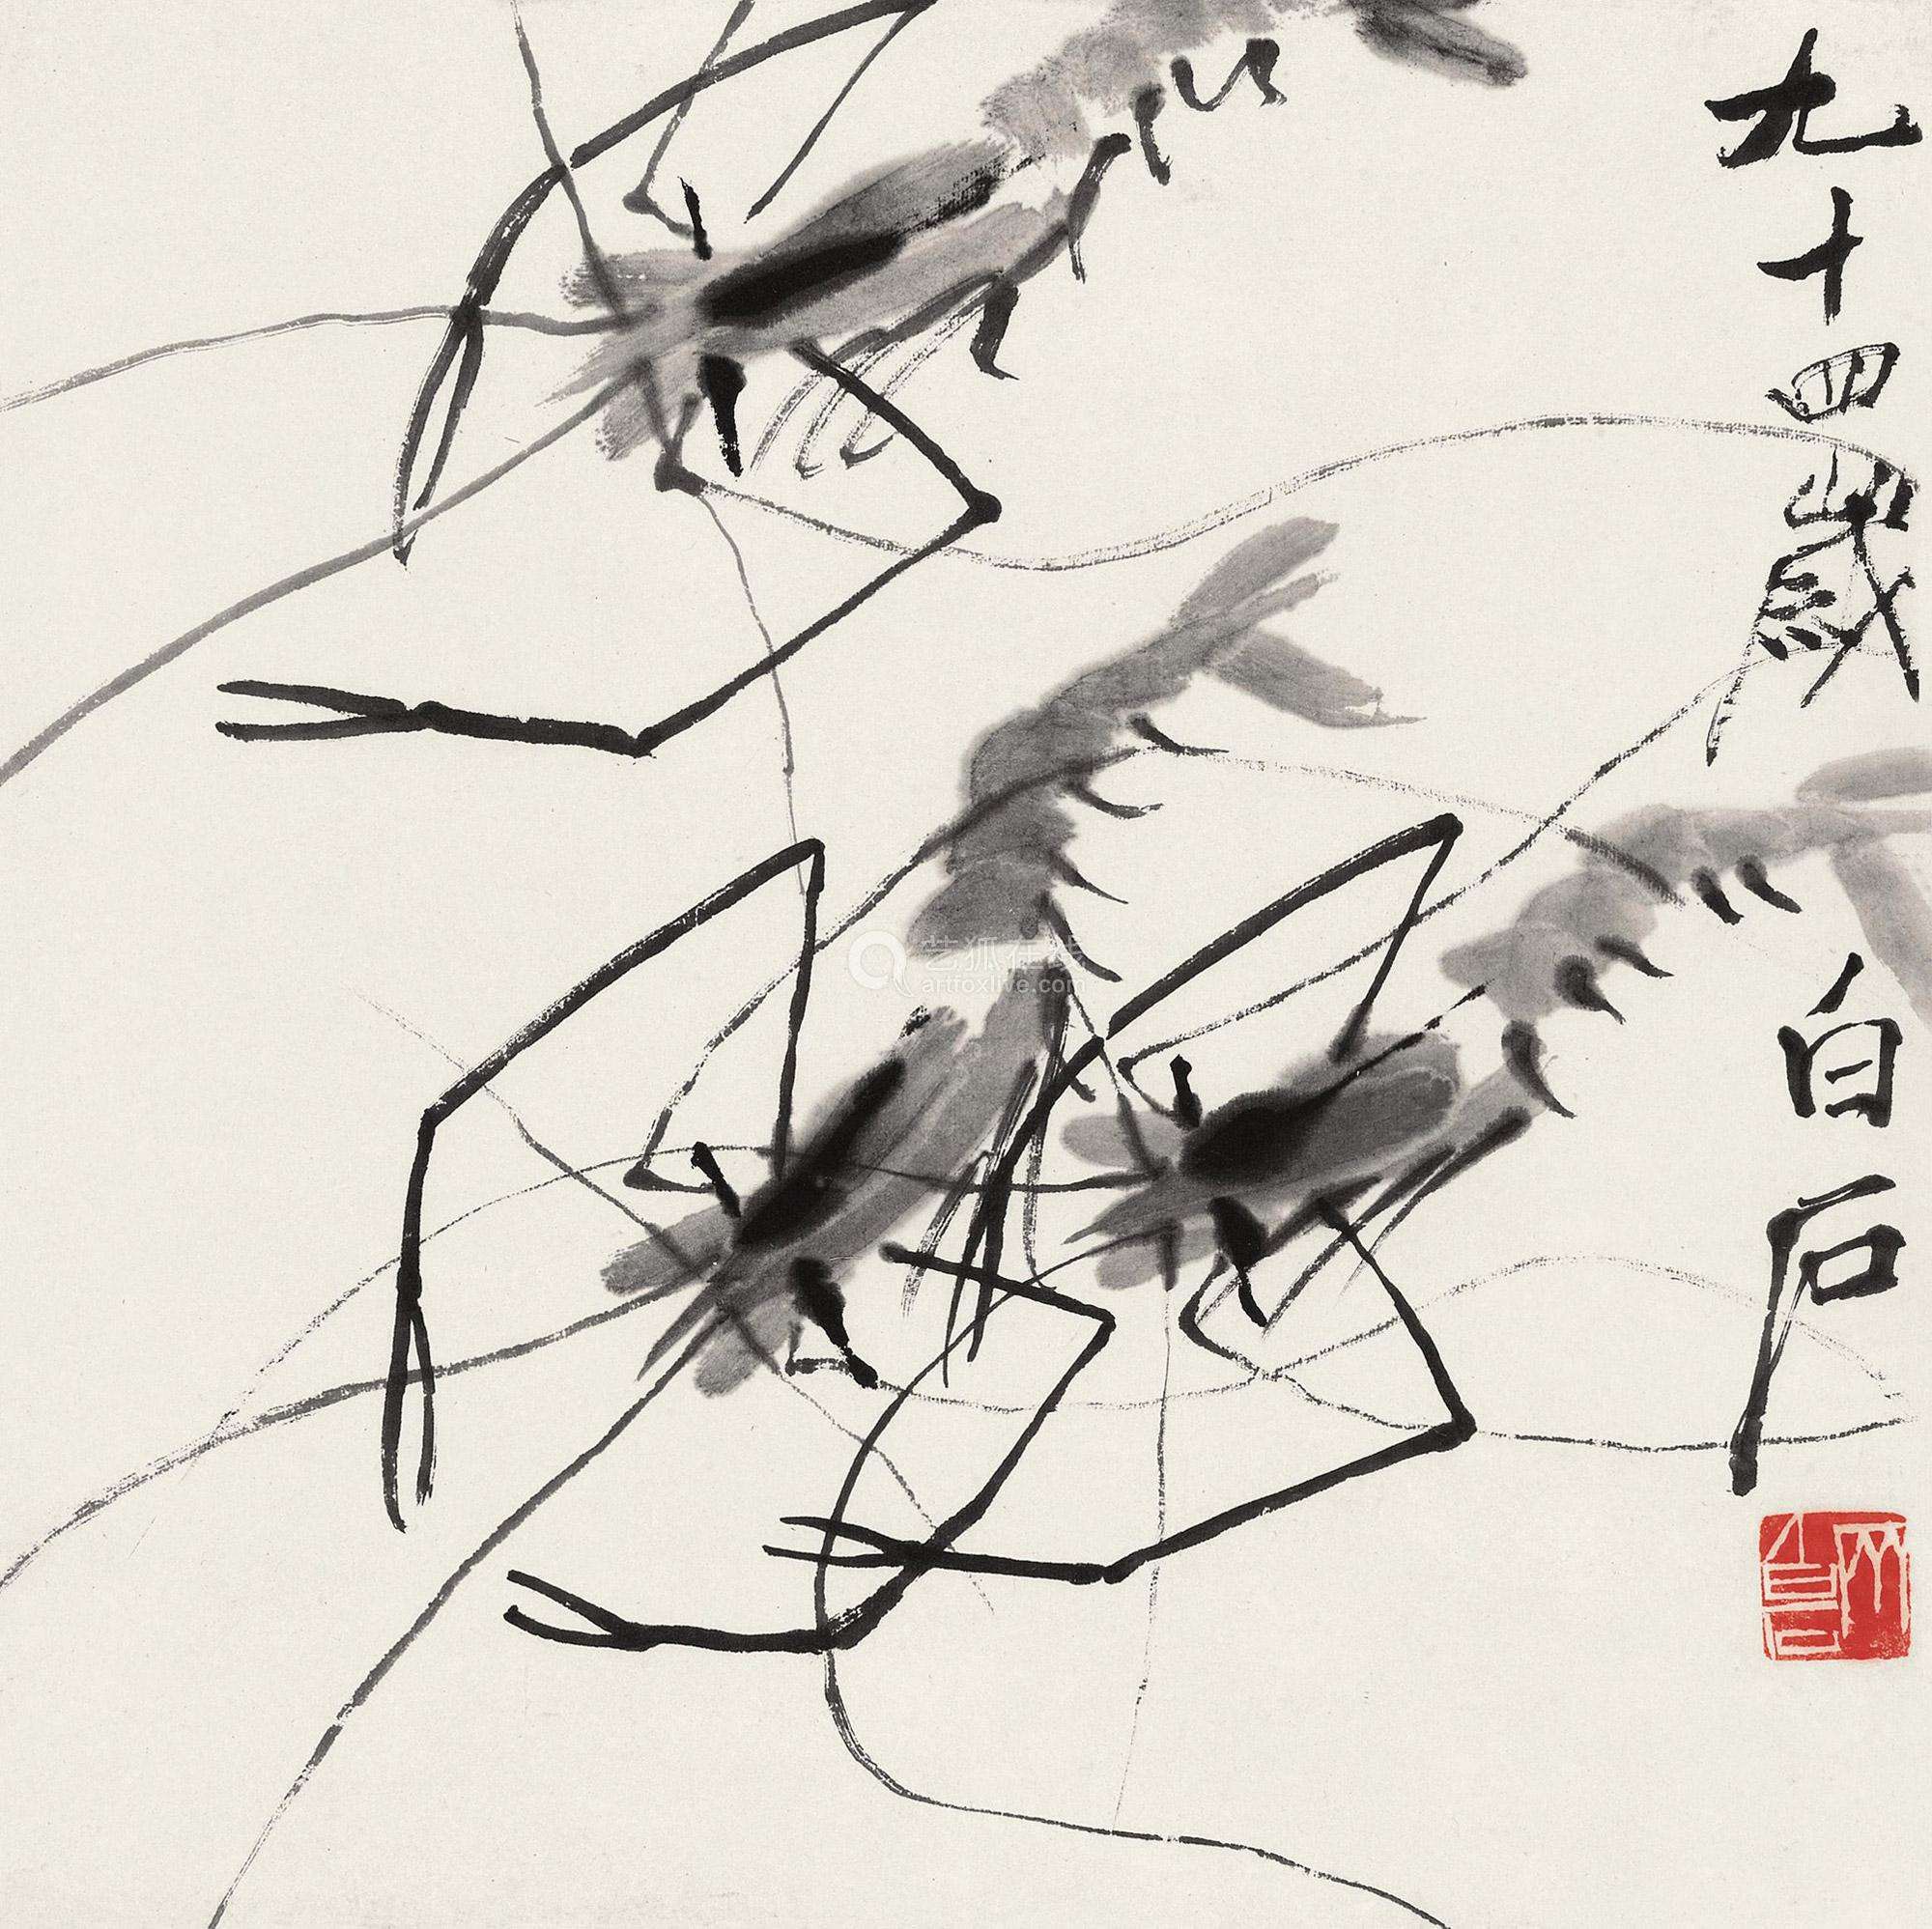 九十四歲白石
艺狐在线
artfoxlive.com